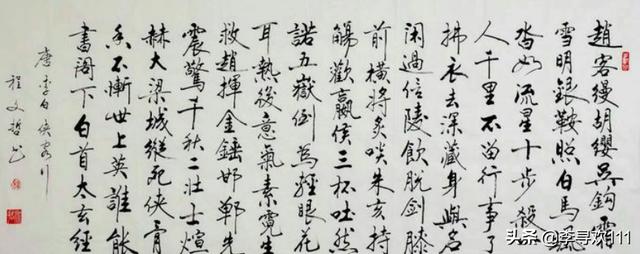 趙客縵胡纓吳鉤霜
雪明銀鞍照白馬颯
沓如流星十步殺一
人千里不留行事了
拂衣去深藏身與名
閑過信陵飲脫劍膝
前橫將炙啖朱亥持
觴歡嬴侯三杯吐然
諾五嶽倒為輕眼花
耳熱後意氣素霓生
救趙揮金錘邯鄲先
震驚千秋二壯士煊
赫大梁城縱死俠骨
香不慚世上英誰能
書閣下白首太玄經
唐李白俠客行
程文哲書
头条@李寻欢111